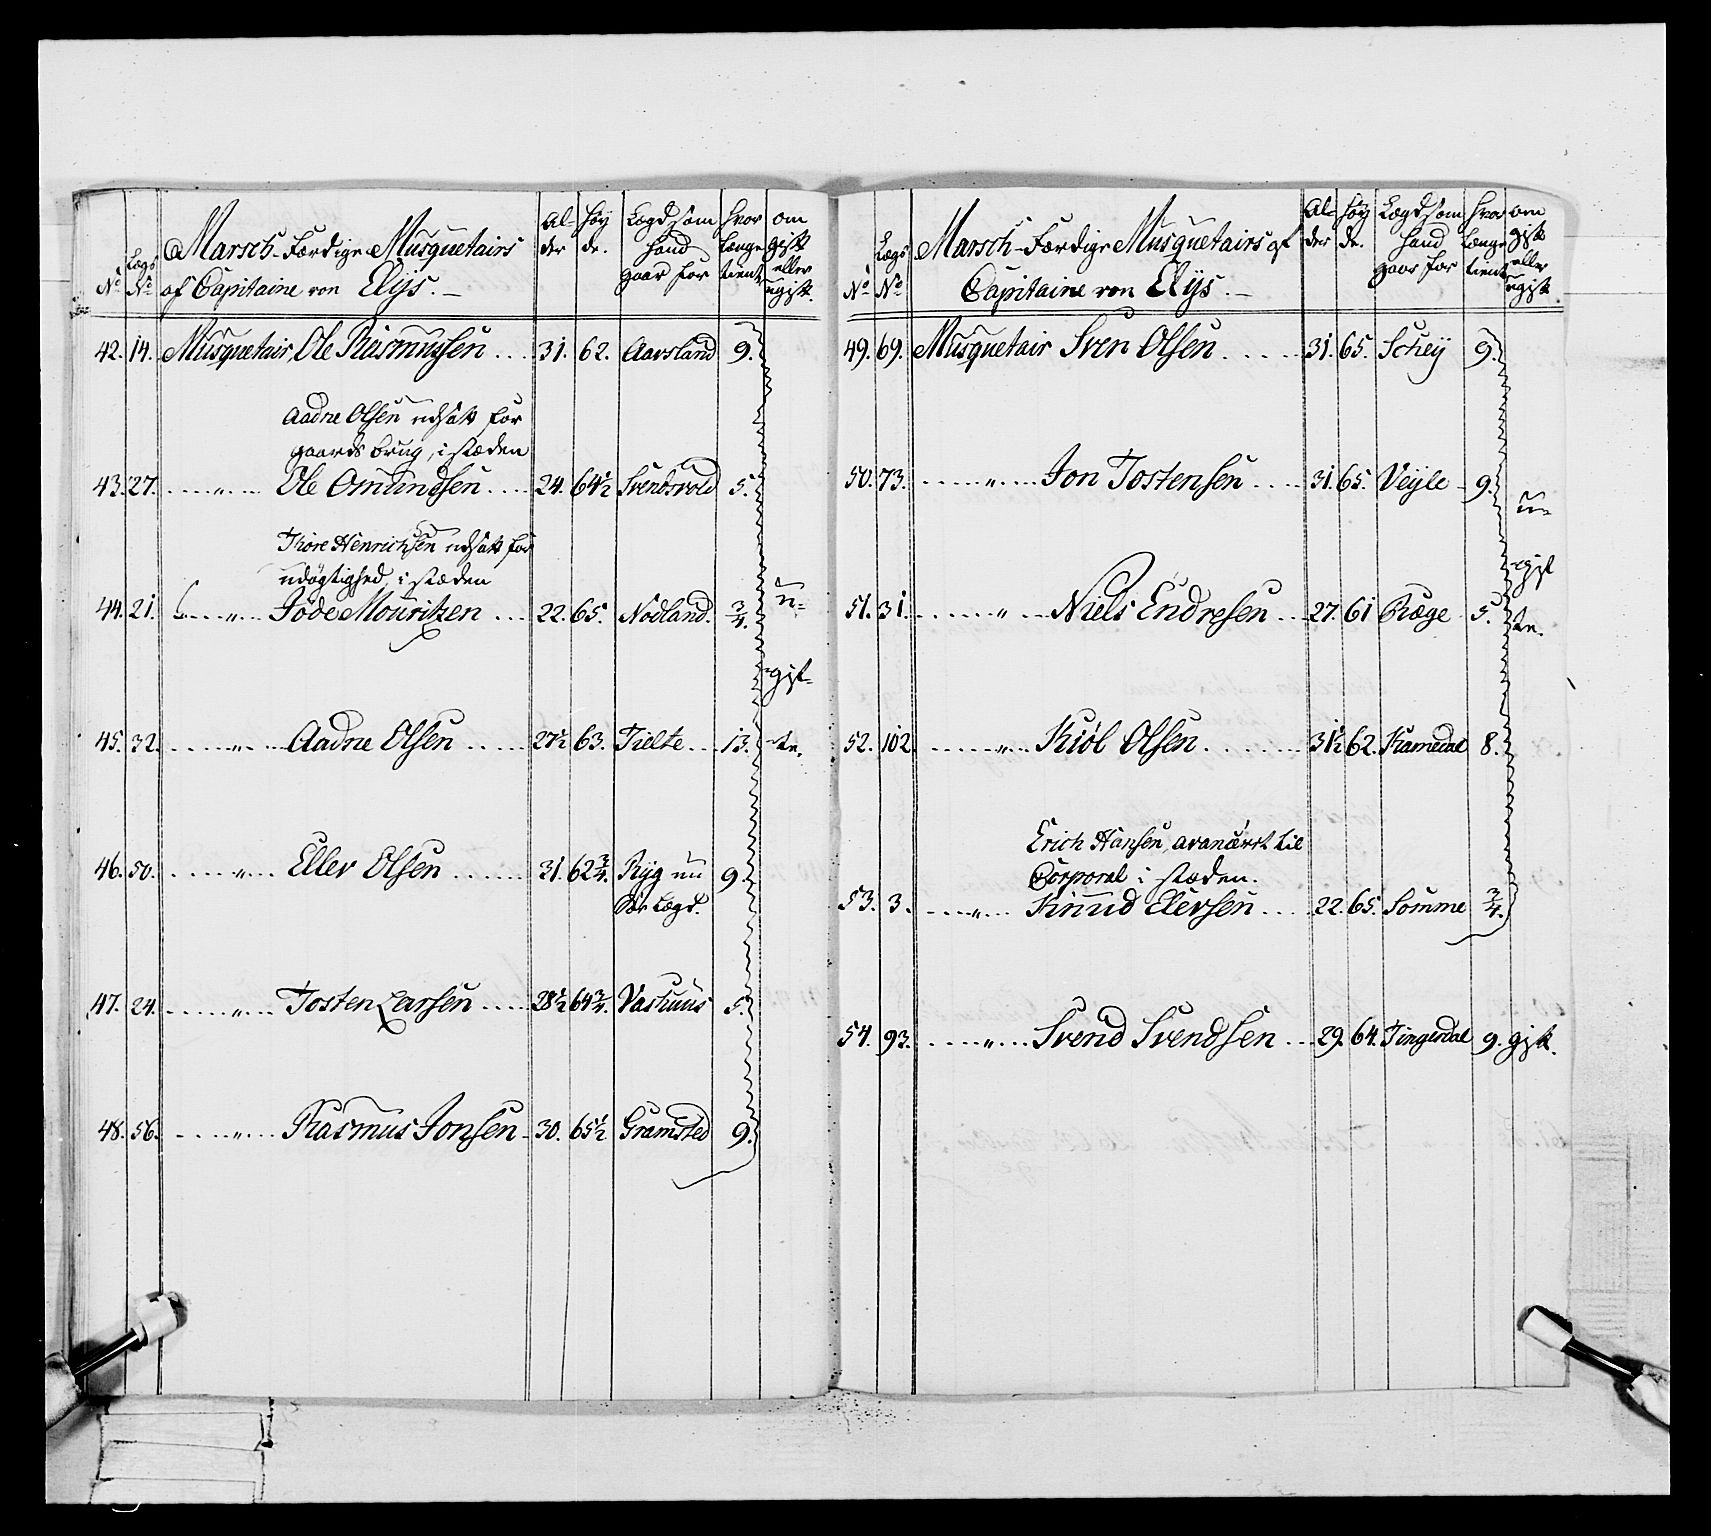 Marsch-Færdige Musquetairs
af Capitaine von Elÿs.
No Lægs No Al- der Høy de. Lægd som hand gaar for hvor længe tient om gift eller ugift.
42. 14. Musquetair, Ole Rasmussen 31. 62. Aarsland 9.
Aadne Olsen udsatt for
gaards brug, i stæden
43. 27. " Ole Omundsen 24. 64½ Svendsvold 5.
Thore Henrichsen udsatt for
udøgtighed, i stæden
44. 21. " Jøde Mouritzen 22. 65. Nodland. ¾.
45. 32. " Aadne Olsen 27½ 63. Tielte 13.
u- gif- te.
46. 50. " Eller Olsen 31. 62¾. Ryg
Lægd.
47. 24. " Tosten Larsen 28½ 64¾. Vashuus 5.
48. 56. " Rasmus Jonsen 30. 65½ Gramsted 9.
Marsch-Færdige Musquetairs af
Capitaine von Elÿs.
No Lægs No Al- der Høy de. Lægd som hand gaar for hvor længe tient om gift eller ugift
49. 69. Musquetair Sven Olsen 31. 65. Schey 9.
50. 73. " Jon Tostensen 31. 65. Veyle 9.
51. 31. " Niels Endresen 27. 61 Ræge 5.
u- gif te.
52. 102. " Kiøl Olsen 31½ 62. Kamedal 8.
Erich Hansen, avancert til
Corporal i stæden.
53. 3. " Knud Elersen 22. 65. Somme ¾.
54. 93. " Svend Svendsen 29. 64. Tingerdal 9. gift.